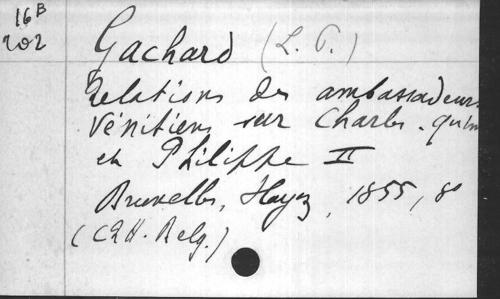 16B
202
Gachard (L. P.)
Relations des ambassadeurs
Vénitiens sur Charles-quint
et Philippe II
Bruxelles, Hayez, 1855, 8°
(CRH. Belg.)